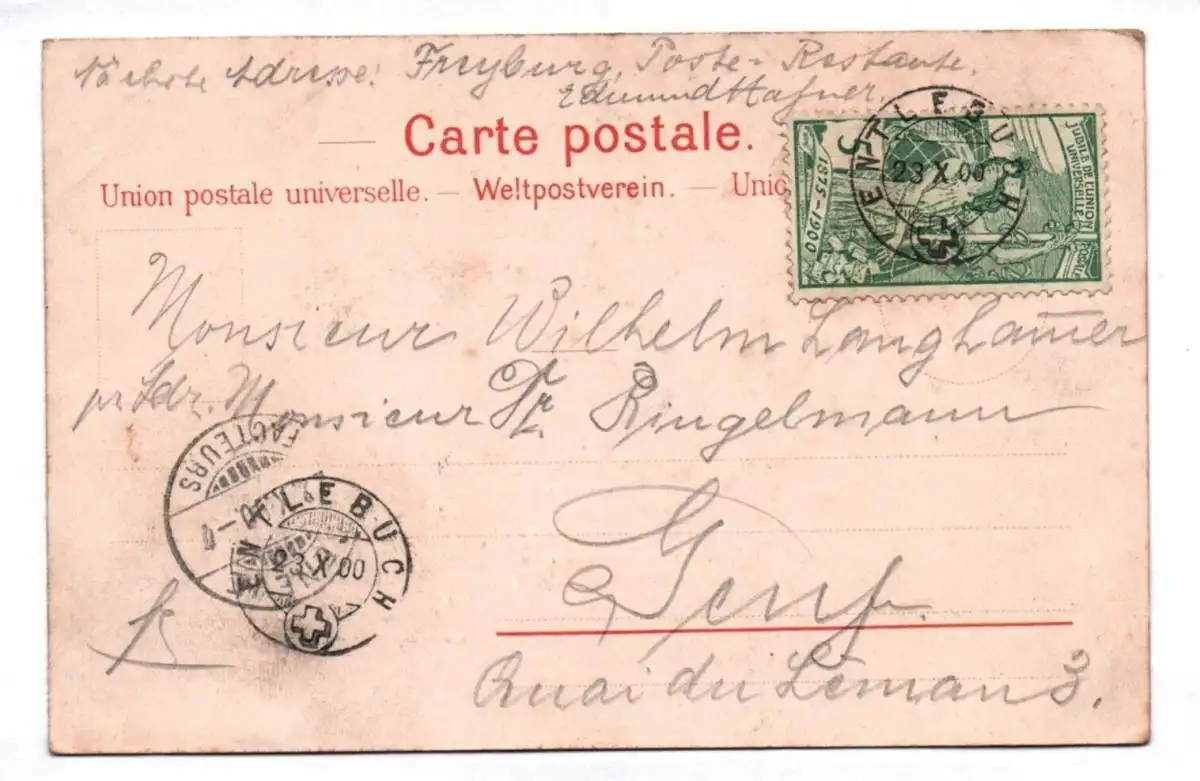 Nächste Adresse: Freyburg, Poste-Restante.
Edmund Hafner.
Carte postale.
Union postale universelle. — Weltpostverein. — Unio
5
1875-1900
JUBILÉ DE L'UNION
POSTALE
UNIVERSELLE
ENTLEBUCH
23 X 00
Monsieur Wilhelm Langham̄er
pr. Adr. Monsieur Dr. Ringelmann
Genf.
Quai du Léman 3.
FACTEURS
ENTLEBUCH
23 X 00